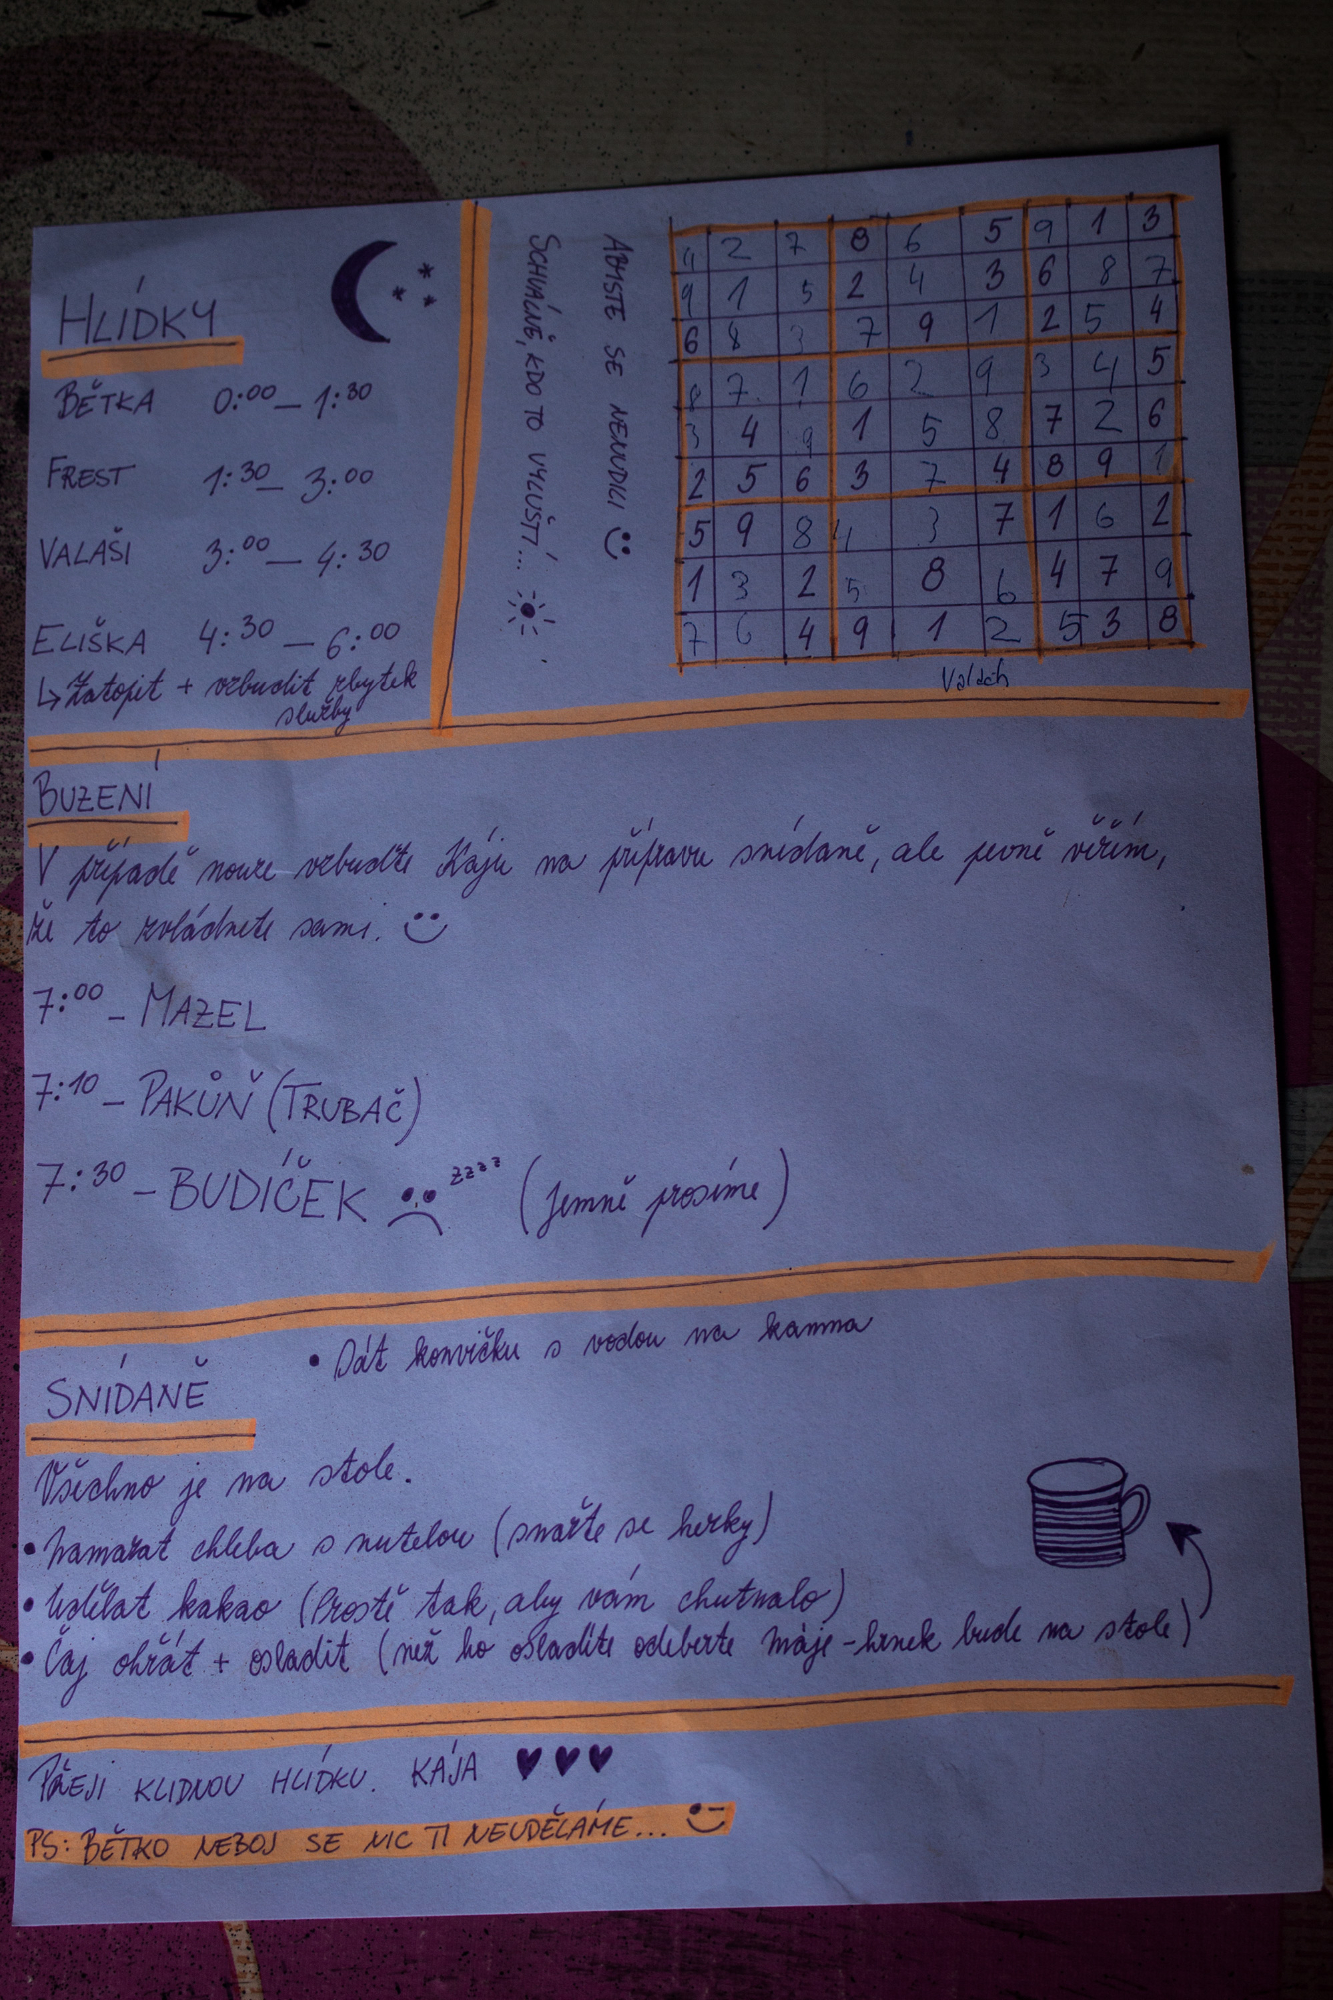 HLÍDKY
BĚTKA 0:00 – 1:30
FREST 1:30 – 3:00
VALAŠI 3:00 – 4:30
ELIŠKA 4:30 – 6:00
↳ Zatopit + vzbudit zbytek
služby
ABYSTE SE NENUDILI :)
SCHVÁLNĚ, KDO TO VYLUŠTÍ...
4 2 7 8 6 5 9 1 3
9 1 5 2 4 3 6 8 7
6 8 3 7 9 1 2 5 4
8 7 1 6 2 9 3 4 5
3 4 9 1 5 8 7 2 6
2 5 6 3 7 4 8 9 1
5 9 8 4 3 7 1 6 2
1 3 2 5 8 6 4 7 9
7 6 4 9 1 2 5 3 8
Valach
BUZENÍ
V případě nouze vzbuďte Káju na přípravu snídaně, ale pevně věřím,
že to zvládnete sami. :)
7:00 – MAZEL
7:10 – PAKŮŇ (TRUBAČ)
7:30 – BUDÍČEK :( zzzz (jemně prosíme)
• Dát konvičku s vodou na kamna
SNÍDANĚ
Všechno je na stole.
• Namazat chleba s nutelou (snažte se herky)
• Udělat kakao (Prostě tak, aby vám chutnalo)
• Čaj ohřát + osladit (než ho osladíte odeberte Máje – hrnek bude na stole)
PŘEJI KLIDNOU HLÍDKU. KÁJA ♥♥♥
PS: BĚTKO NEBOJ SE NIC TI NEUDĚLÁME... ;)